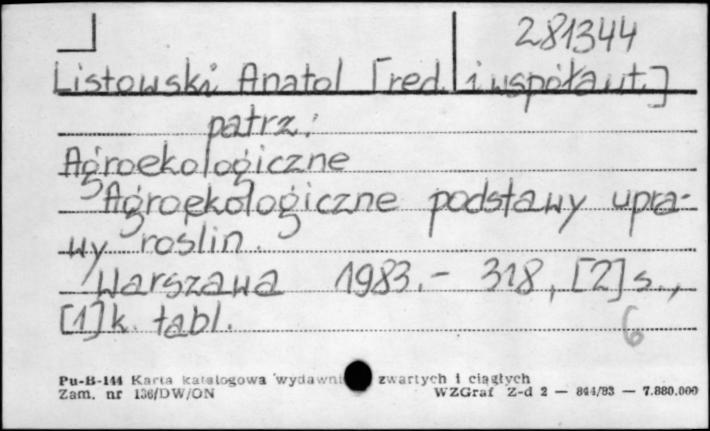 281344
Listowski Anatol [red. i współaut.]
patrz:
Agroekologiczne
Agroekologiczne podstawy upra-
wy roslin.
Warszawa 1983.- 318, [2] s.,
[1] k. tabl.
6
Pu-B-144 Karta katalogowa wydawni zwartych i ciągłych
Zam. nr 136/DW/ON WZGraf Z-d 2 — 844/83 — 7.880.000